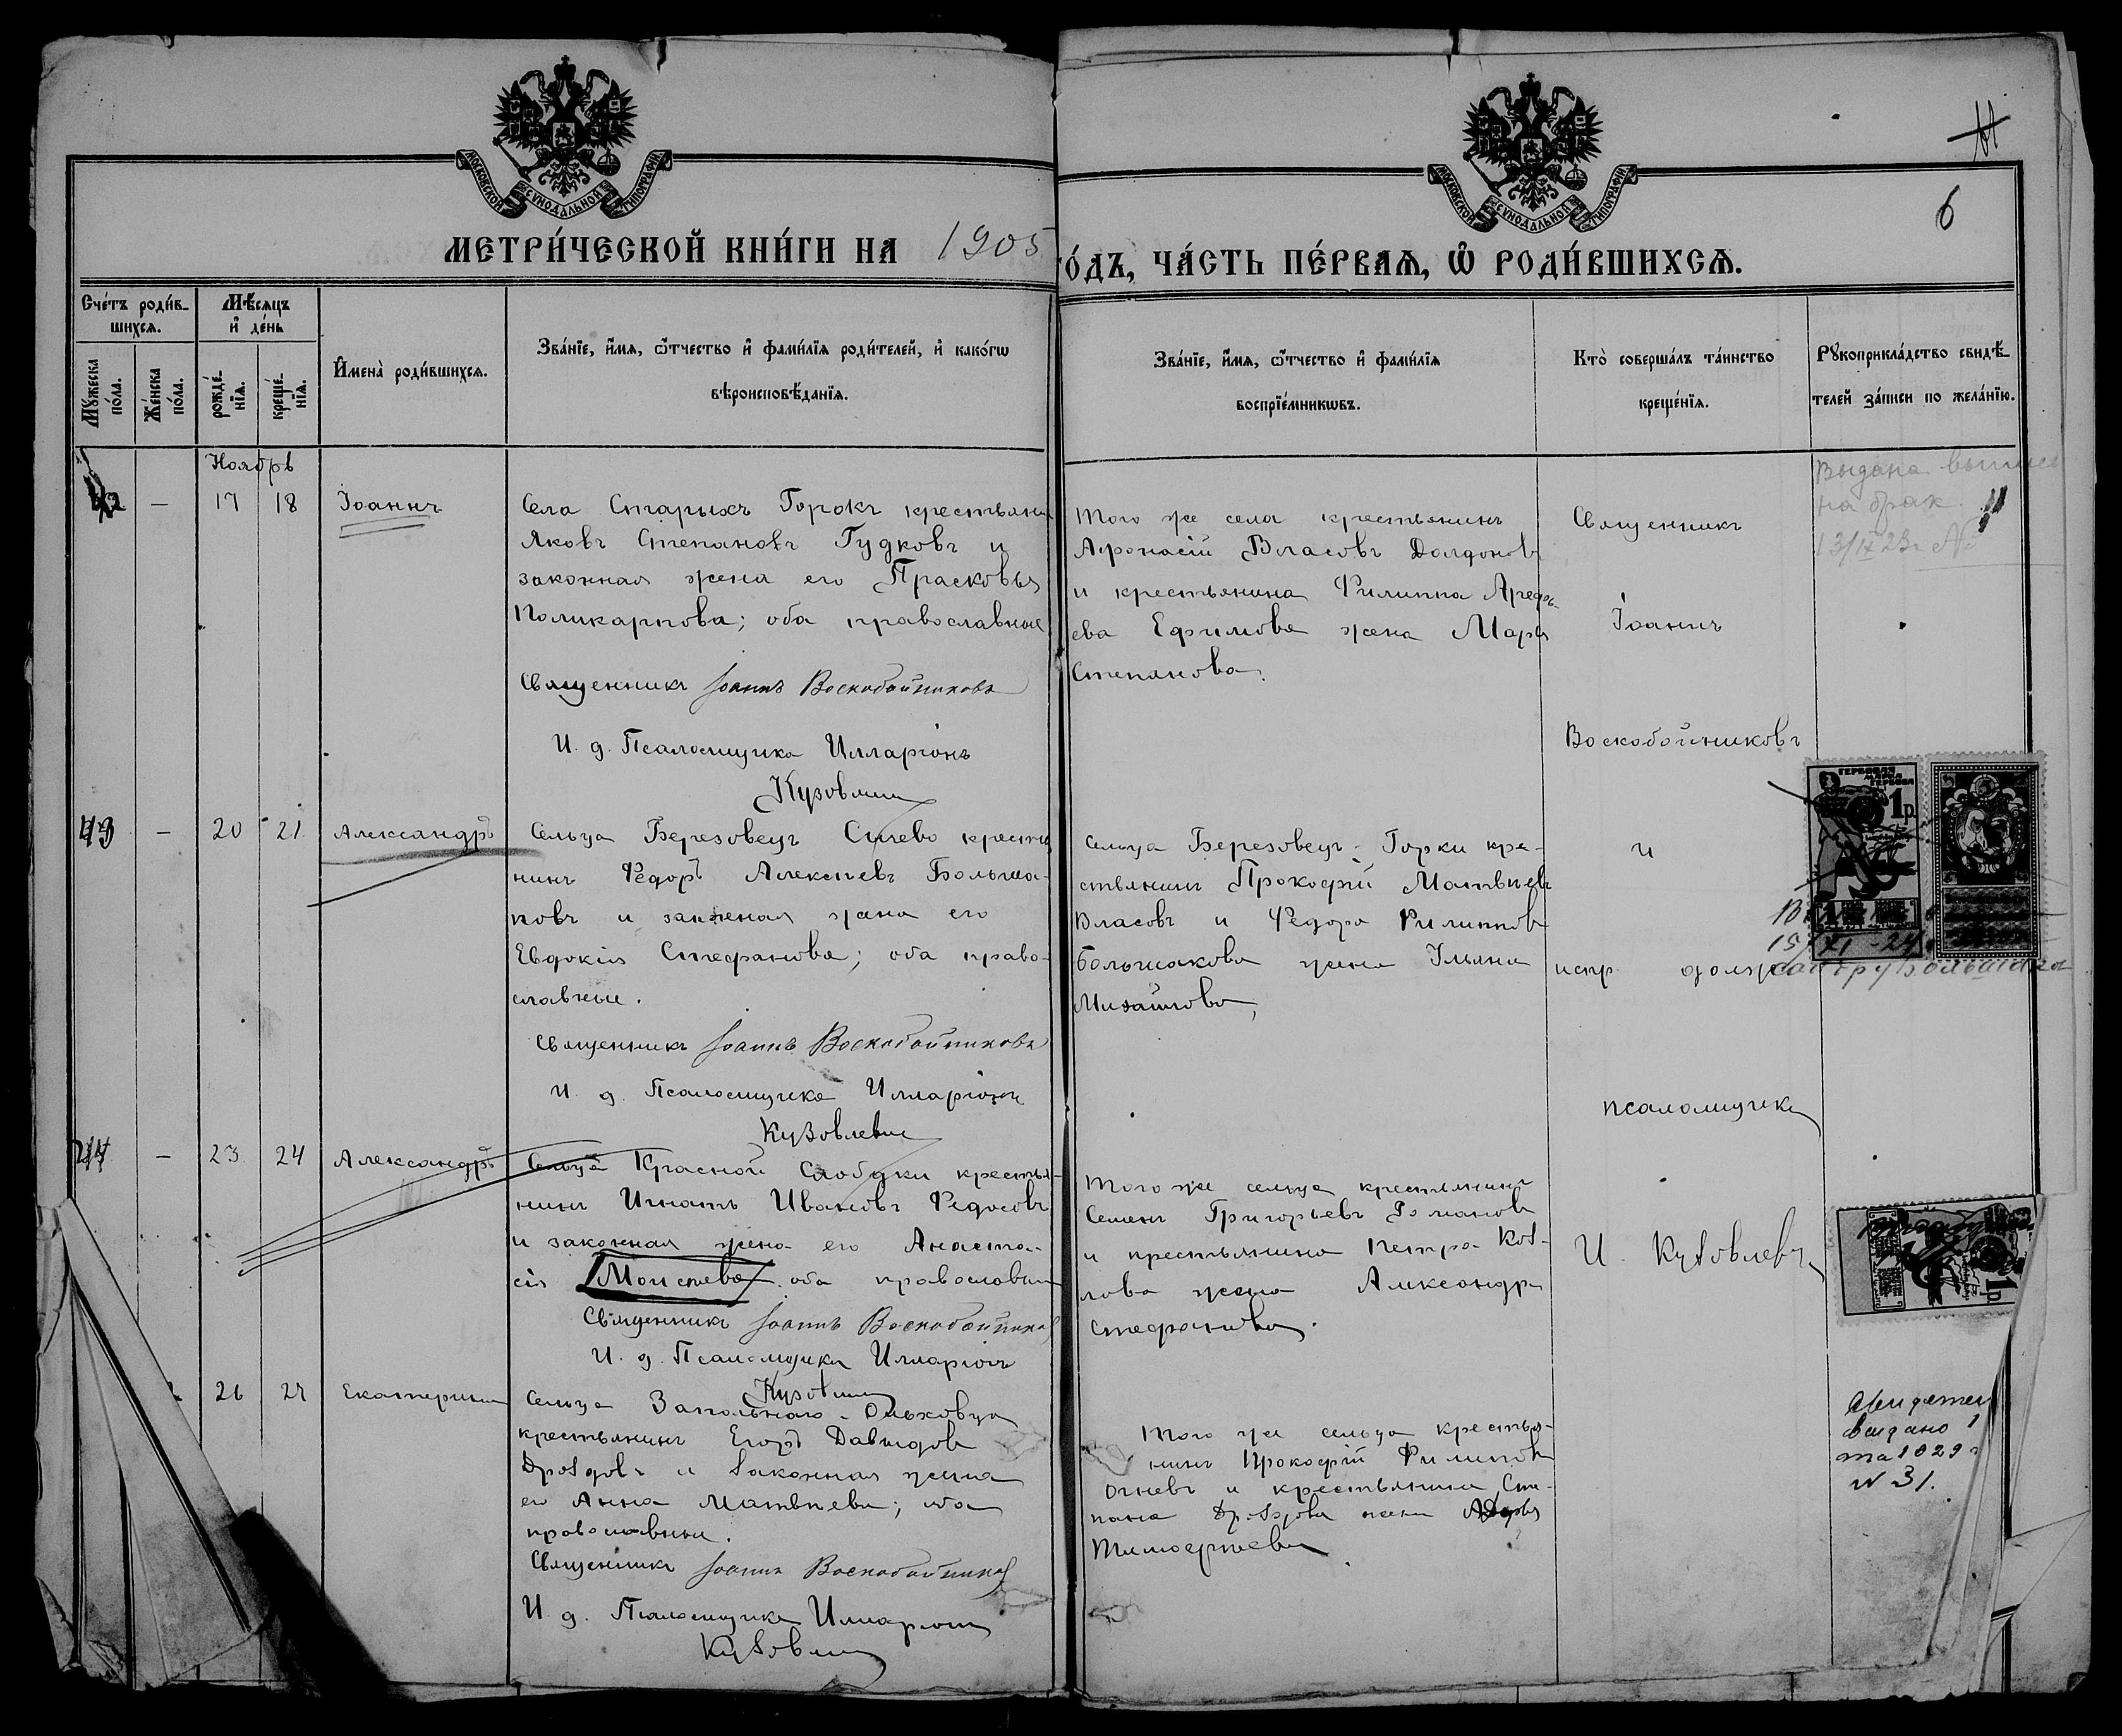 МОСКОВСКОЙ СѴНОДАЛЬНОЙ ТИПОГРАФІИ
МОСКОВСКОЙ СѴНОДАЛЬНОЙ ТИПОГРАФІИ
6
МЕТРИ́ЧЕСКОЙ КНИ́ГИ НА 1905
О́ДЪ, ЧА́СТЬ ПЕ́РВАѦ, Ѡ҆ РОДИ́ВШИХСѦ.
Сче́тъ роди́в-
шихсѧ.
Мѣ́сѧцъ
и҆ де́нь
Мꙋ́жеска
по́ла.
Же́нска
по́ла.
рожде́-
нїѧ.
креще́-
нїѧ.
И҆мена̀ роди́вшихсѧ.
Зва́нїе, и҆́мѧ, ѻ҆́тчество и҆ фами́лїѧ роди́телей, и҆ како́гѡ
вѣроисповѣ́данїѧ.
Зва́нїе, и҆́мѧ, ѻ҆́тчество и҆ фами́лїѧ
воспрїе́мникѡвъ.
Кто̀ соверша́лъ та́инство
креще́нїѧ.
Рꙋкоприкла́дство свидѣ́-
телей за́писи по жела́нїю.
Ноябрь
42 — 17 18 Іоаннъ
Села Старыхъ Горокъ крестьяни
Яковъ Степановъ Гудковъ и
законная жена его Прасковья
Поликарпова; оба православные
Священникъ Іоаннъ Воскобойниковъ
И. д. Псаломщика Илларіонъ
Кузовлевъ
Того же села крестьянинъ
Афонасій Власовъ Долдоновъ
и крестьянина Филиппа Арефь-
ева Ефимова жена Марья
Степанова.
Священникъ
Іоаннъ
Воскобойниковъ
и
испр. долж
псаломщика
И. Кузовлевъ
Выдана выпись
на брак.
43 — 20 21 Александръ
Сельца Березовецъ Сытево крестья
нинъ Федоръ Алексѣевъ Больша-
ковъ и законная жена его
Евдокія Стефанова; оба право-
славные.
Священникъ Іоаннъ Воскобойниковъ
И. д. Псаломщика Илларіонъ
Кузовлевъ
Сельца Березовецъ-Горки кре-
стьянинъ Прокофій Матвѣевъ
Власовъ и Федора Филиппова
Большакова жена Ульяна
Михайлова,
ГЕРБОВАЯ
1 р.
44 — 23 24 Александръ
Сельца Красной Слободки крестья-
нинъ Игнатъ Ивановъ Федосовъ
и законная жена его Анаста-
сія Моисѣева оба православны
Священникъ Іоаннъ Воскобойников
И. д. Псаломщика Илларіонъ
Кузовлевъ
Того же сельца крестьянинъ
Семенъ Григорьевъ Романовъ
и крестьянина Петра Коз-
лова жена Александра
Стефанова.
1 р
26 27 Екатерина
Сельца Запольнаго-Ольховца
крестьянинъ Егоръ Давыдовъ
Дроздовъ и законная жена
его Анна Матвѣева; оба
православные.
Священникъ Іоаннъ Воскобойников
И. д. Псаломщика Илларіонъ
Кузовлевъ
Того же сельца крестья-
нинъ Прокофій Филиповъ
Огневъ и крестьянина Сте-
пана Дроздова жена Дарья
Тимофеева
Свидетел
выдано 1
та 1929 г
N 31.